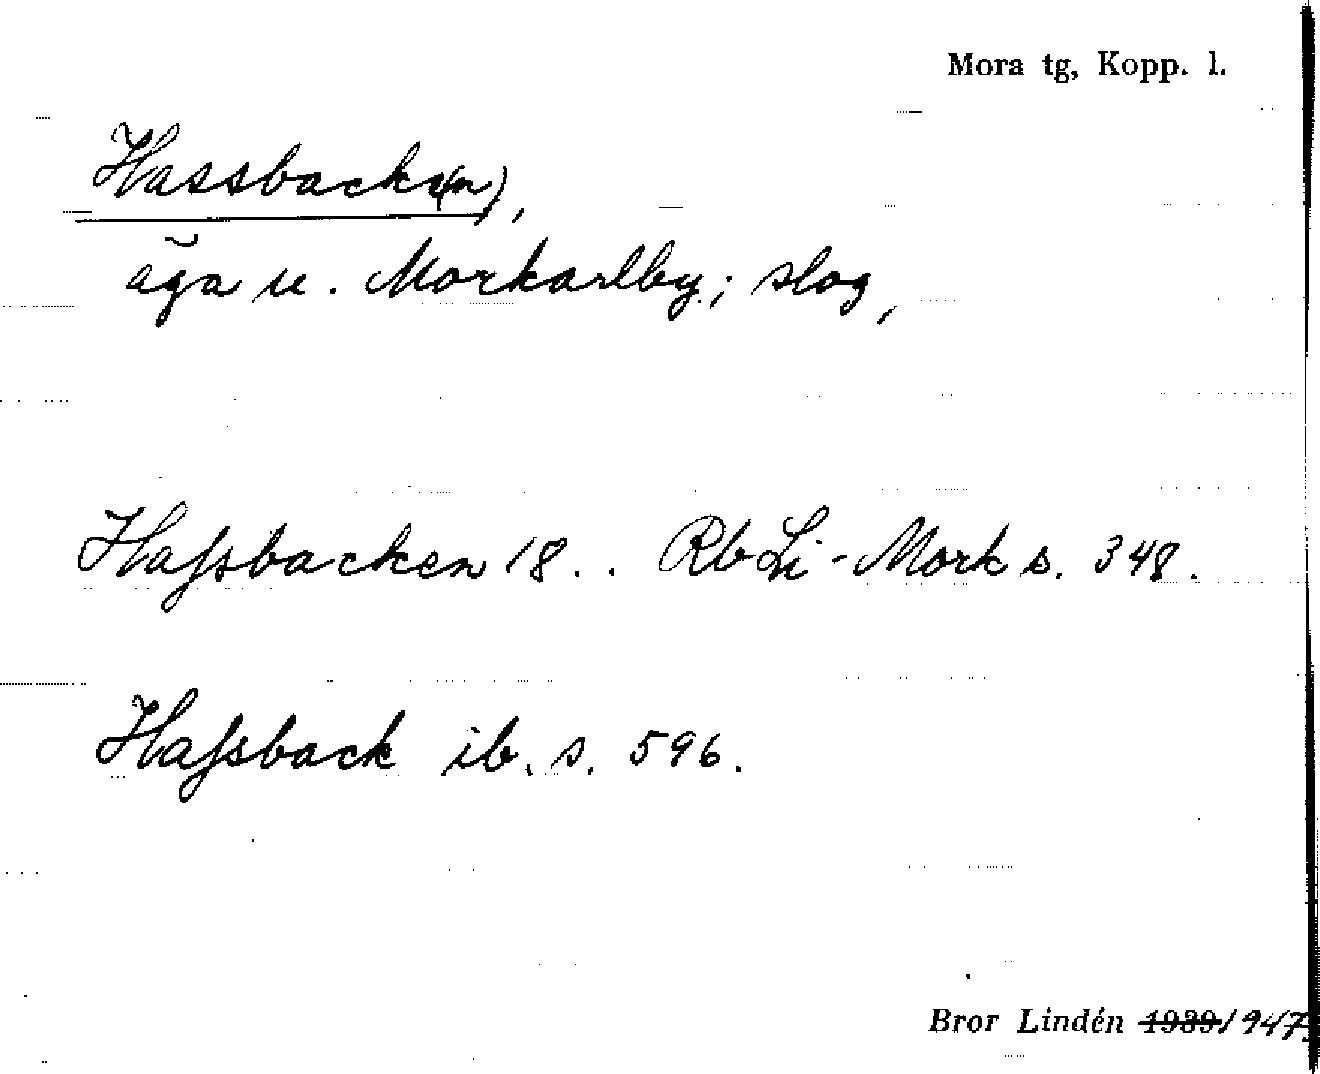 Mora tg, Kopp. l.
Hassback(en),
äga u. Morkarlby; slog,
Hafsbacken 18.. RbLi-Mork s. 348.
Hafsback ib. s. 596.
Bror Lindén 1939 1947.